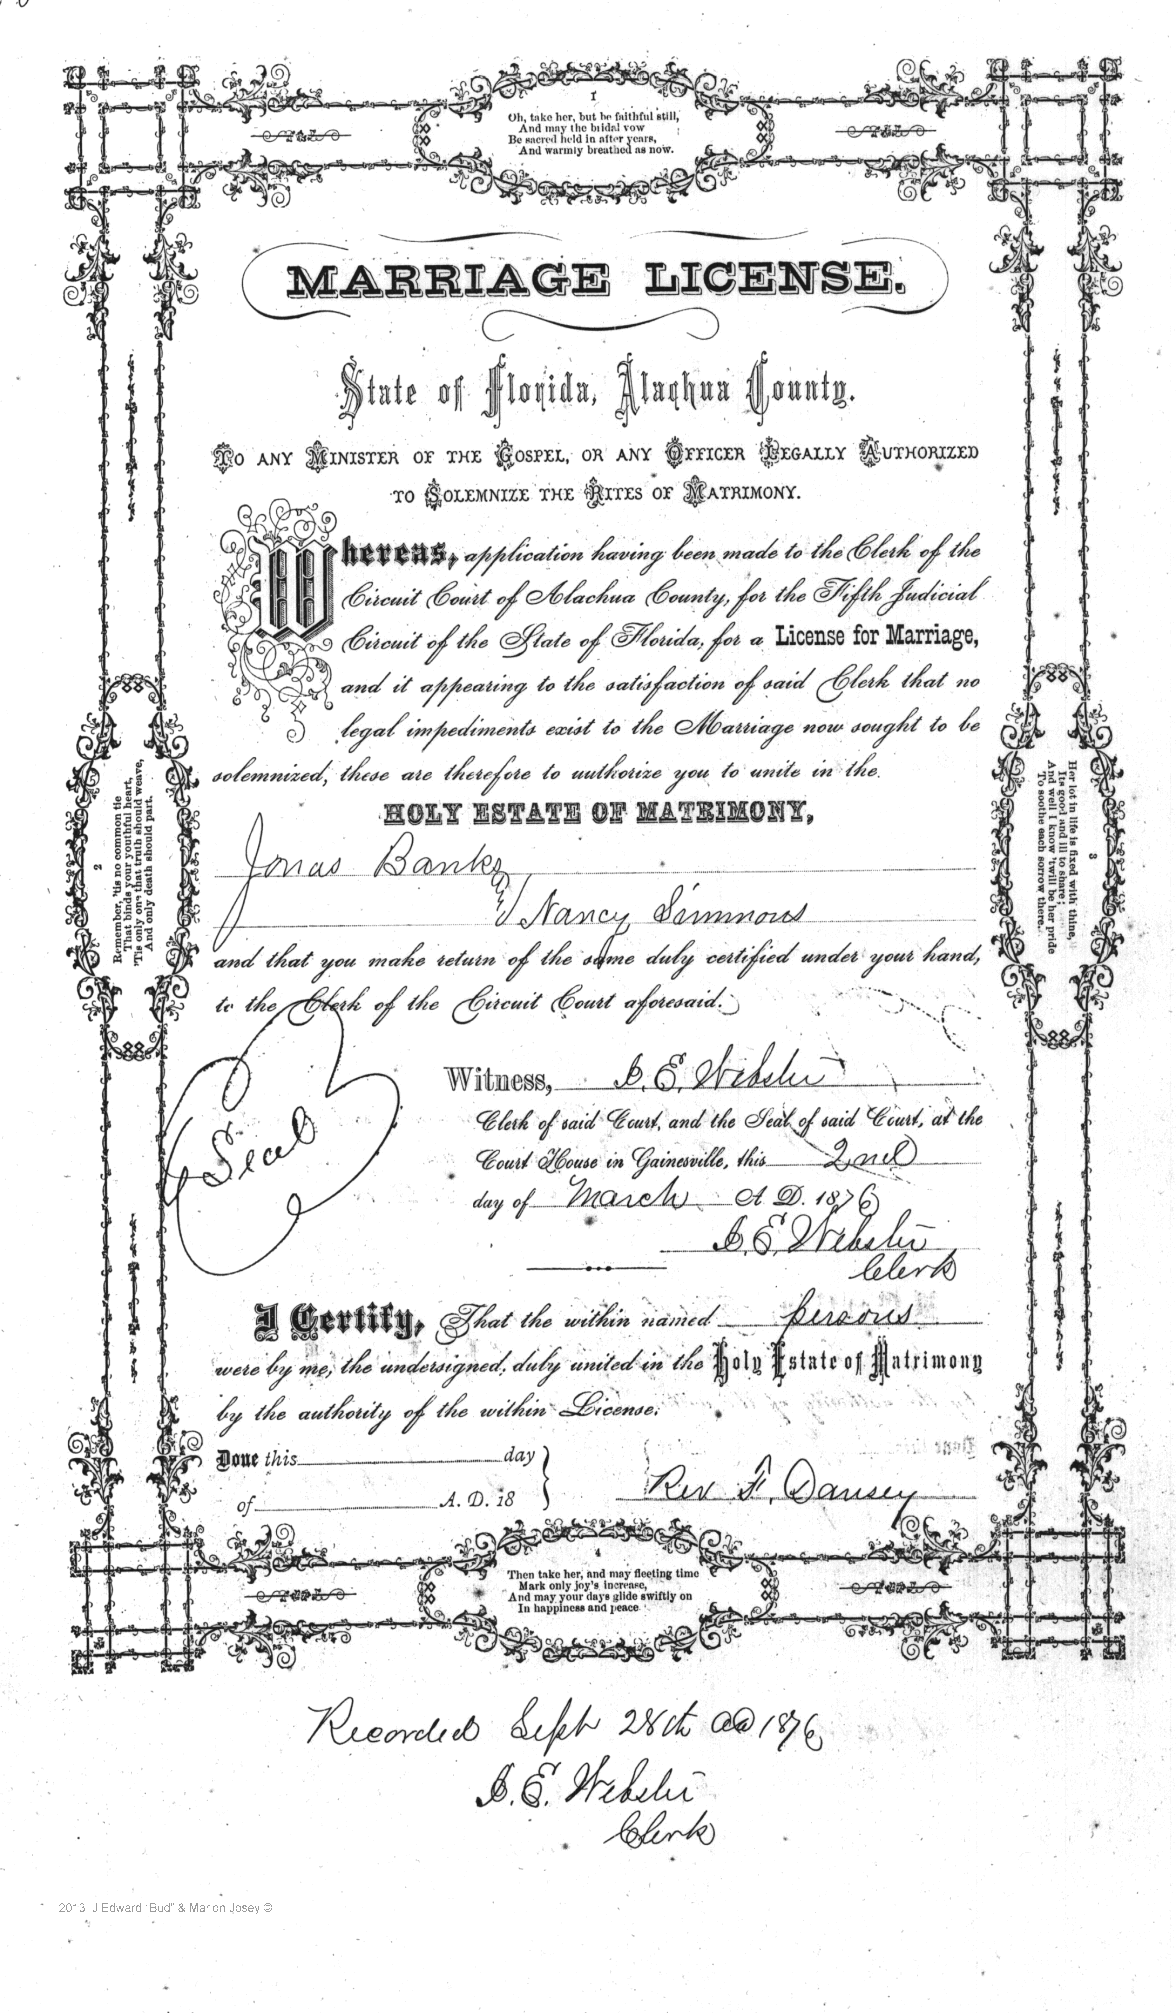 1
Oh, take her, but be faithful still,
And may the bridal vow
Be sacred held in after years,
And warmly breathed as now.
MARRIAGE LICENSE.
State of Florida, Alachua County.
TO ANY MINISTER OF THE GOSPEL, OR ANY OFFICER LEGALLY AUTHORIZED
TO SOLEMNIZE THE RITES OF MATRIMONY.
Whereas, application having been made to the Clerk of the
Circuit Court of Alachua County, for the Fifth Judicial
Circuit of the State of Florida, for a License for Marriage,
and it appearing to the satisfaction of said Clerk that no
legal impediments exist to the Marriage now sought to be
solemnized, these are therefore to authorize you to unite in the
HOLY ESTATE OF MATRIMONY,
Jonas Banks
& Nancy Simmons
and that you make return of the same duly certified under your hand,
to the Clerk of the Circuit Court aforesaid.
2
Remember, 'tis no common tie
That binds your youthful heart,
'Tis only one that truth should weave,
And only death should part.
3
Her lot in life is fixed with thine,
Its good and ill to share;
And well I know 'twill be her pride
To soothe each sorrow there.
Seal
Witness, J. E. Webster
Clerk of said Court, and the Seal of said Court, at the
Court House in Gainesville, this 2nd
day of March A D. 1876
J. E. Webster
Clerk
I Certify, That the within named persons
were by me, the undersigned, duly united in the Holy Estate of Matrimony
by the authority of the within License.
Done this day
of A. D. 18
Rev F. Dansey
4
Then take her, and may fleeting time
Mark only joy's increase,
And may your days glide swiftly on
In happiness and peace
Recorded Sept 28th AD 1876
J. E. Webster
Clerk
2013 J Edward "Bud" & Marion Josey ©